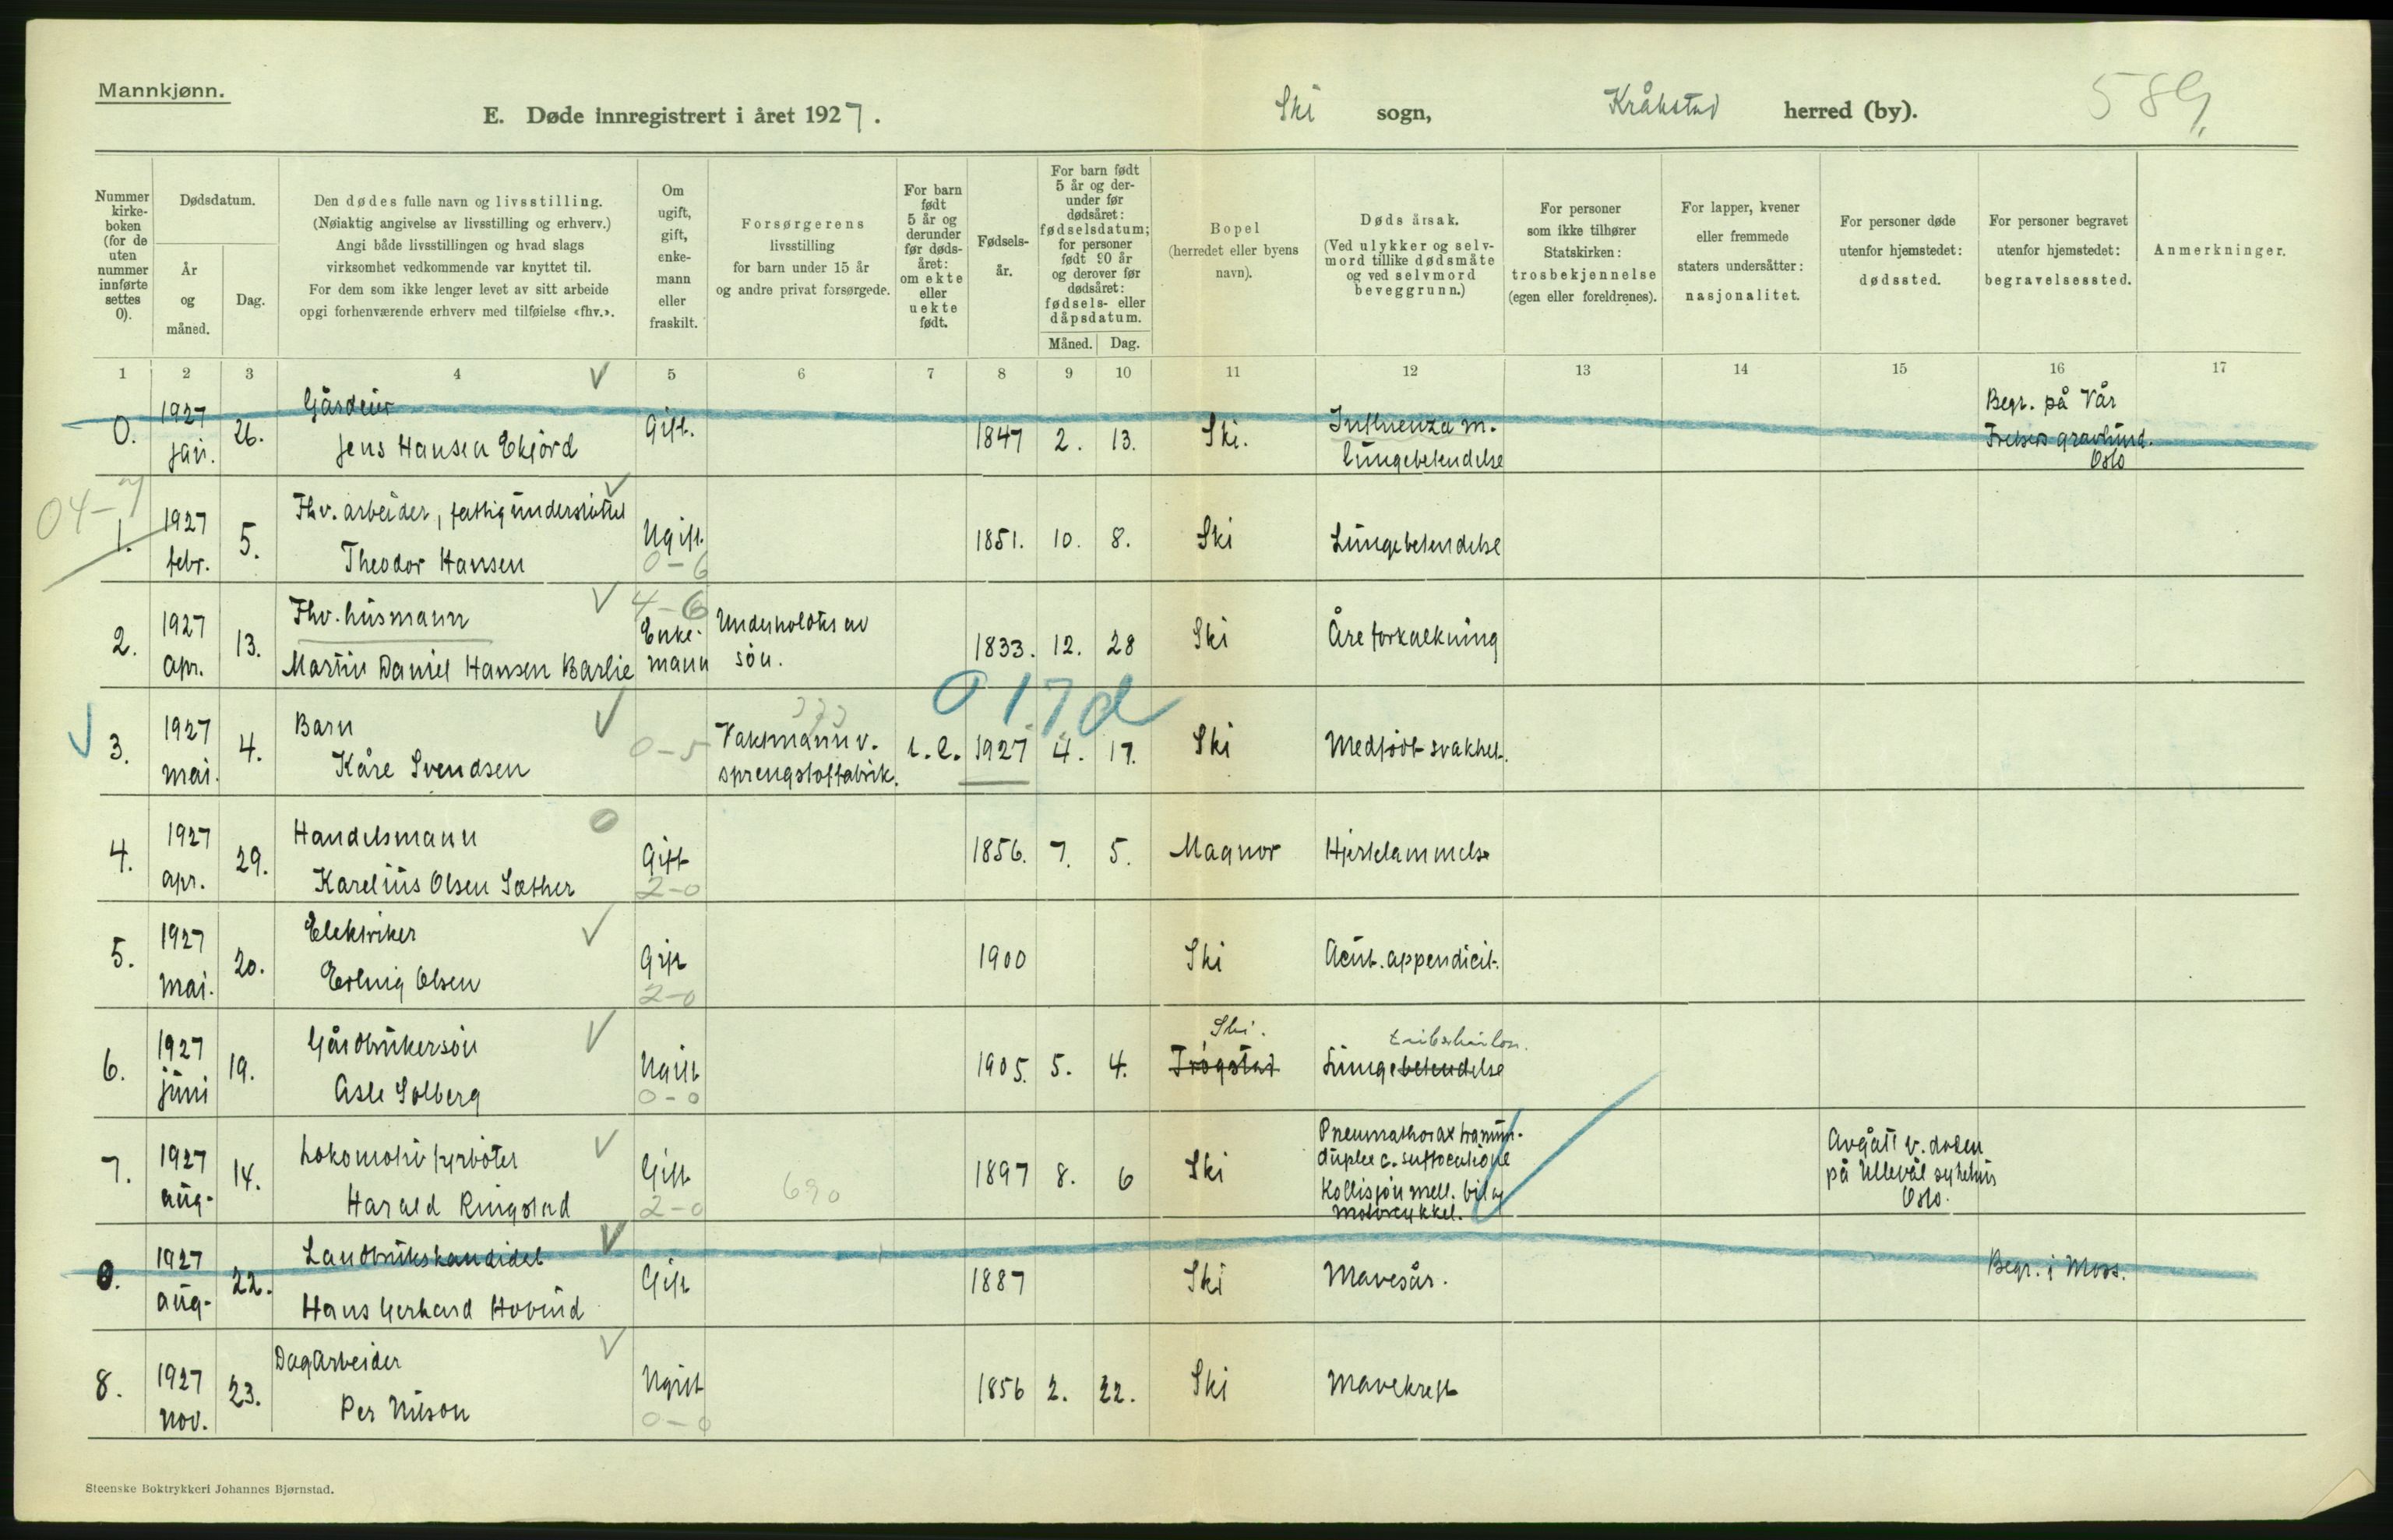 Mannkjønn.
E. Døde innregistrert i året 1927.
Ski sogn,
Kråkstad herred (by).
589.
Nummer kirke-boken (for de uten nummer innførte settes 0).
Dødsdatum.
År og måned.
Dag.
Den dødes fulle navn og livsstilling.
(Nøiaktig angivelse av livsstilling og erhverv.)
Angi både livsstillingen og hvad slags
virksomhet vedkommende var knyttet til.
For dem som ikke lenger levet av sitt arbeide
opgi forhenværende erhverv med tilføielse «fhv.».
Om ugift, gift, enke-mann eller fraskilt.
Forsørgerens
livsstilling
for barn under 15 år
og andre privat forsørgede.
For barn født 5 år og derunder før døds-året: om ekte eller uekte født.
Fødsels-år.
For barn født 5 år og der-under før dødsåret: fødselsdatum; for personer født 90 år og derover før dødsåret: fødsels- eller dåpsdatum.
Måned. Dag.
Bopel
(herredet eller byens
navn).
Døds årsak.
(Ved ulykker og selv-
mord tillike dødsmåte
og ved selvmord
beveggrunn.)
For personer
som ikke tilhører
Statskirken:
trosbekjennelse
(egen eller foreldrenes).
For lapper, kvener
eller fremmede
staters undersåtter:
nasjonalitet.
For personer døde
utenfor hjemstedet:
dødssted.
For personer begravet
utenfor hjemstedet:
begravelsessted.
Anmerkninger.
1 2 3 4 5 6 7 8 9 10 11 12 13 14 15 16 17
0. 1927 jan. 26. Gårdeier
Jens Hansen Ekjörd Gift. 1847 2. 13. Ski. Influenza m.
lungebetendelse
Begr. på Vår
Frelsers gravlund.
Oslo
04-
1. 1927 febr. 5. Fhv. arbeider, fattigunderstöttet
Theodor Hansen Ugift. 0-6 1851. 10. 8. Ski Lungebetendelse
2. 1927 apr. 13. Fhv. husmann
Martin Daniel Hansen Barlie 4-6 Enke-
mann Underholdtes av
sön. 1833. 12. 28 Ski Åreforkalkning
017d
3. 1927 mai. 4. Barn
Kåre Svendsen 0-5 Vaktmann v.
sprengstoffabrik. 1927 4. 17. Ski Medfödt svakhet.
4. 1927 apr. 29. Handelsmann
Karelius Olsen Sæther Gift 2-0 1856. 7. 5. Magnor Hjertelammelse
5. 1927 mai. 20. Elektriker
Erling Olsen Gift 2-0 1900 Ski Acut. appendicit.
6. 1927 juni 19. Gårdbrukersön
Asle Solberg Ugift 0-0 1905. 5. 4. Ski.
Trögstad
Lungebetendelse
7. 1927 aug. 14. Lokomotivfyrböter
Harald Ringstad Gift 2-0 690 1897 8. 6 Ski Pneumathorax traum.
duplex c. suffocatione
Kollisjon mell. bil og
motorcykkel.
Avgått v. döden
på Ullevål sykehus
Oslo.
0. 1927 aug. 22. Landbrukskandidat
Hans Gerhard Hovind Gift 1887 Ski Mavesår.
Begr. i Moss.
8. 1927 nov. 23. Dagarbeider
Per Nilson Ugift 0-0 1856 2. 22. Ski Mavekreft
Steenske Boktrykkeri Johannes Bjørnstad.